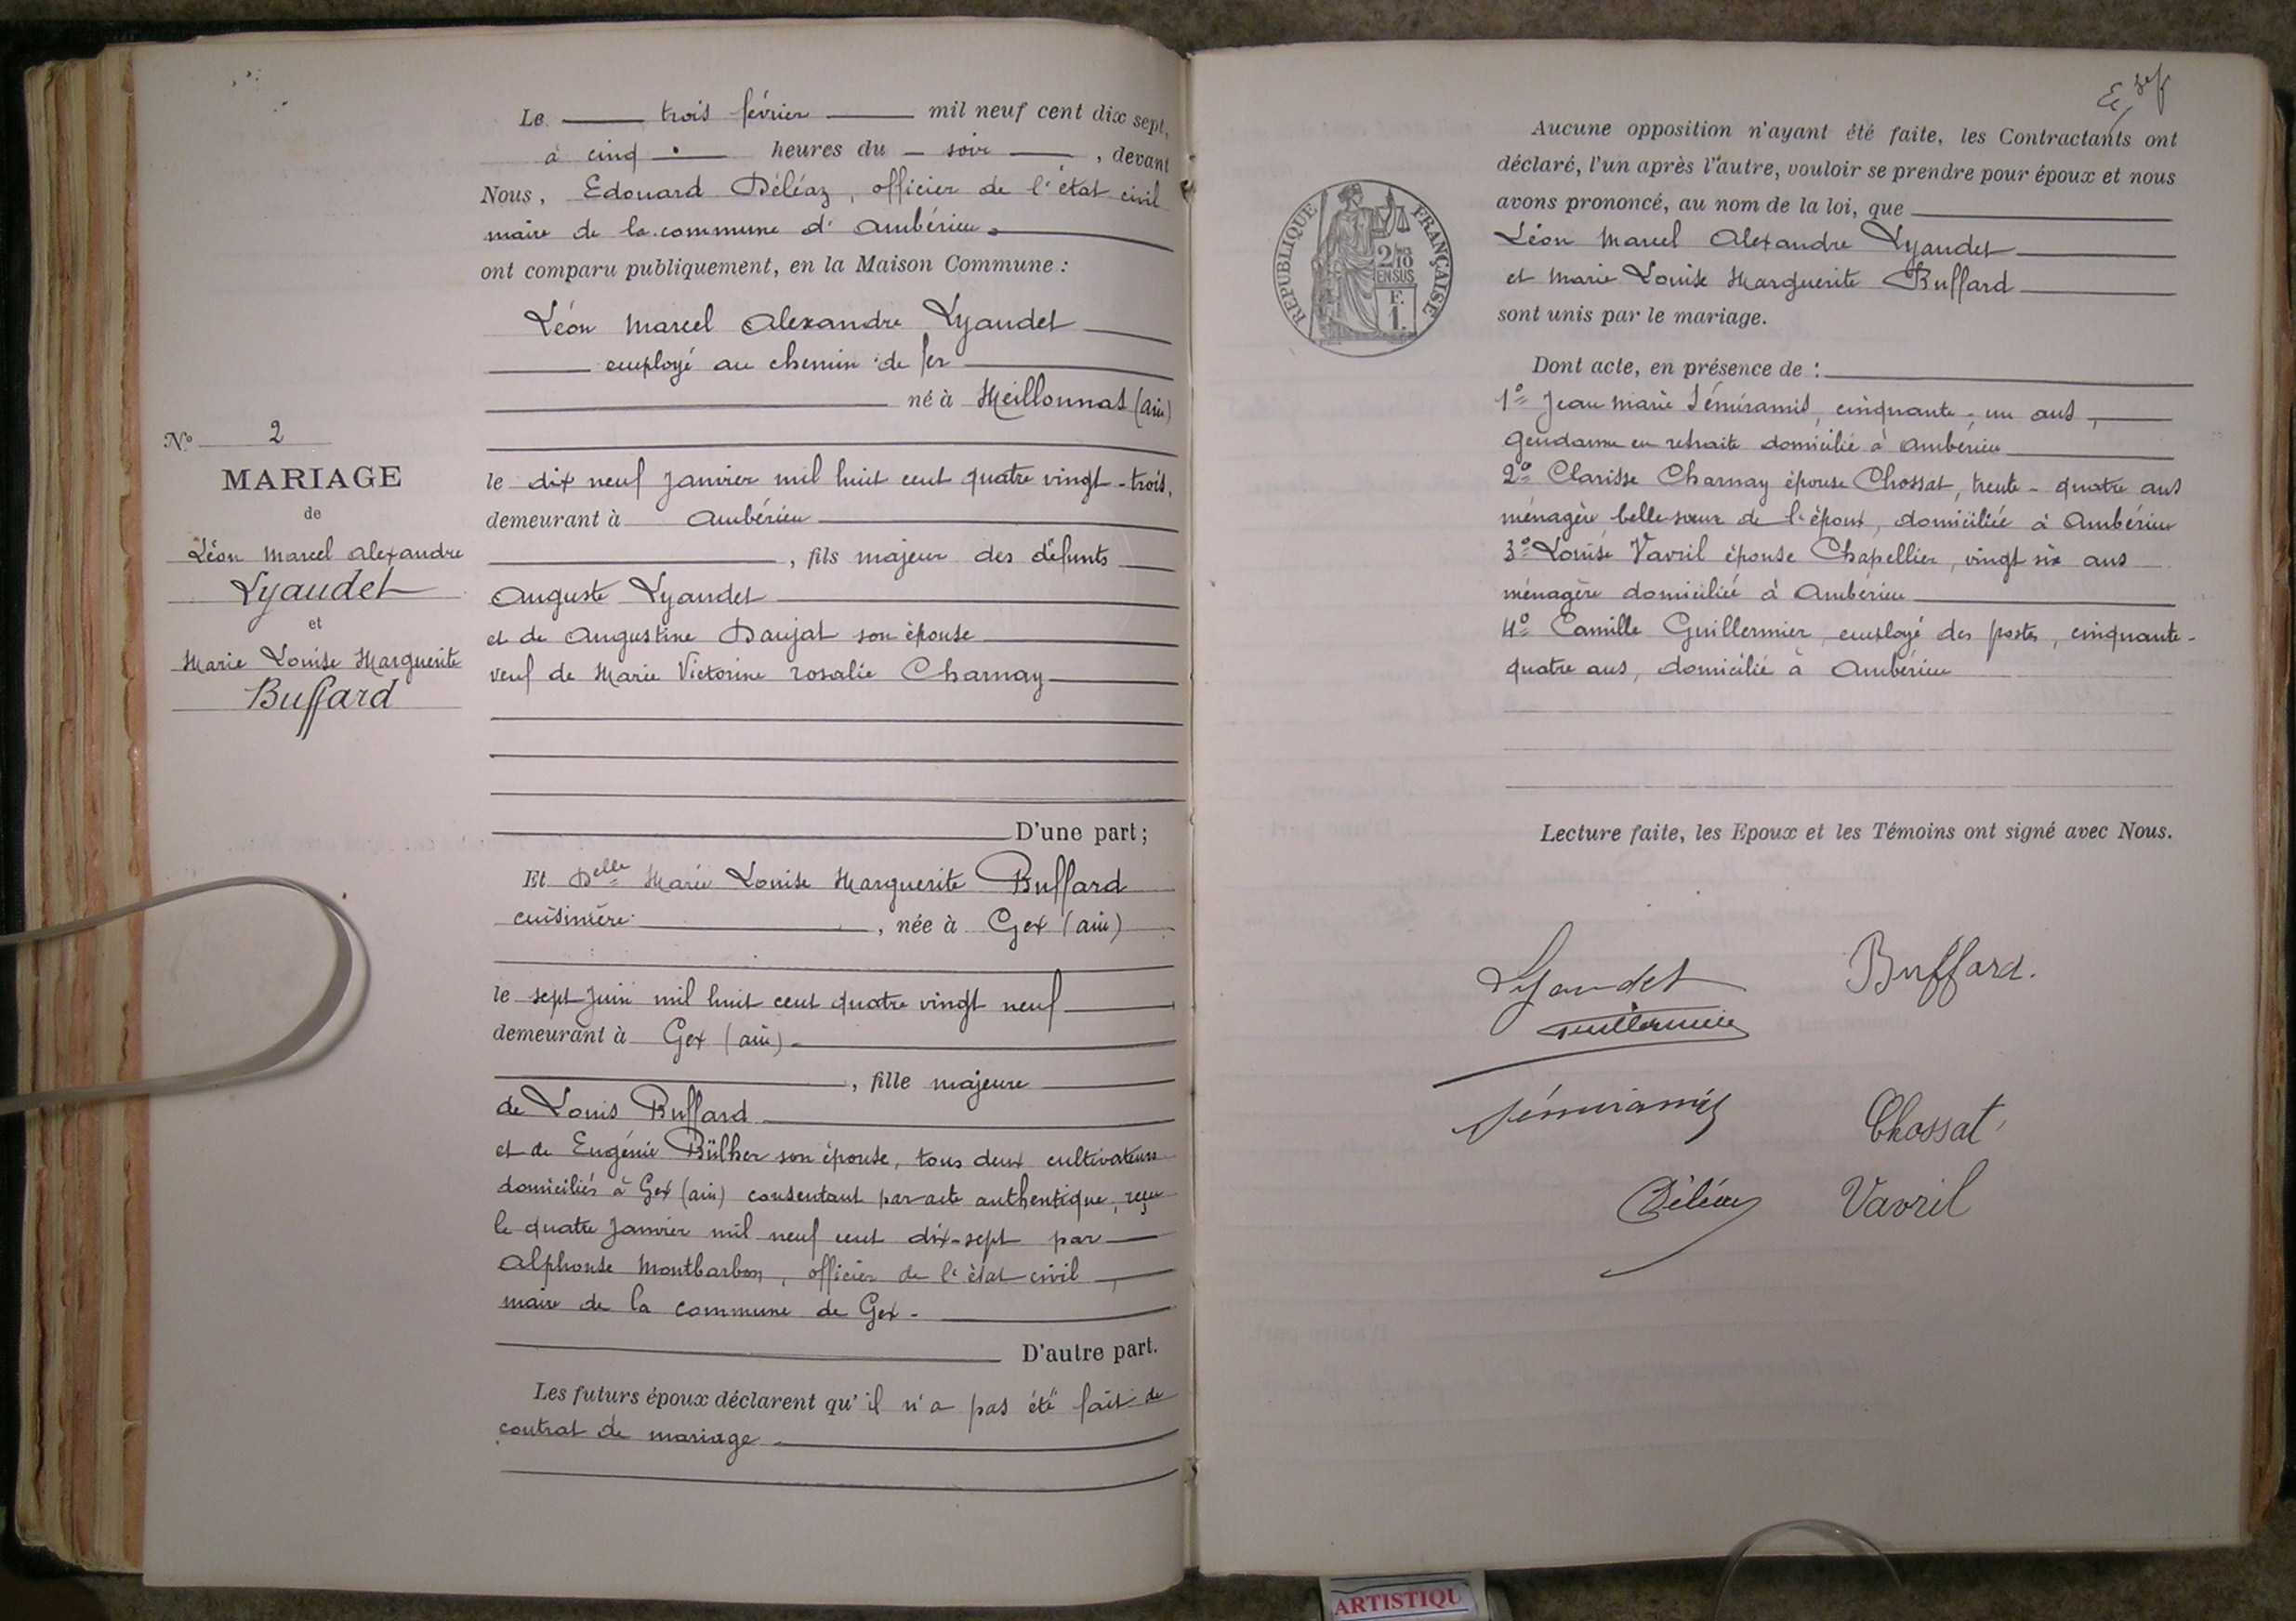 Le trois février mil neuf cent dix sept,
à cinq heures du soir, devant
Nous, Edouard Déléaz, officier de l'état civil
maire de la commune d'Ambérieu
ont comparu publiquement, en la Maison Commune :
Léon Marcel Alexandre Lyaudet
employé au chemin de fer
né à Meillonnas (ain)
le dix neuf Janvier mil huit cent quatre vingt-trois,
demeurant à Ambérieu
, fils majeur des défunts
Auguste Lyaudet
et de Augustine Daujat son épouse
veuf de Marie Victorine rosalie Charnay
D'une part ;
Et Delle Marie Louise Marguerite Buffard
cuisinière, née à Gex (ain)
le sept Juin mil huit cent quatre vingt neuf
demeurant à Gex (ain)
, fille majeure
de Louis Buffard
et de Eugénie Bülher son épouse, tous deux cultivateurs
domiciliés à Gex (ain) consentant par acte authentique, reçu
le quatre Janvier mil neuf cent dix-sept par
Alphonse Montbarbon, officier de l'état civil,
maire de la commune de Gex.
D'autre part.
Les futurs époux déclarent qu'il n'a pas été fait de
contrat de mariage
N° 2
MARIAGE
de
Léon Marcel Alexandre
Lyaudet
et
Marie Louise Marguerite
Buffard
Aucune opposition n'ayant été faite, les Contractants ont
déclaré, l'un après l'autre, vouloir se prendre pour époux et nous
avons prononcé, au nom de la loi, que
Léon Marcel Alexandre Lyaudet
et Marie Louise Marguerite Buffard
sont unis par le mariage.
Dont acte, en présence de :
1° Jean Marie Sémiramis, cinquante-un ans,
Gendarme en retraite domicilié à Ambérieu
2° Clarisse Charnay épouse Chossat, trente-quatre ans
ménagère belle-sœur de l'époux, domiciliée à Ambérieu
3° Louise Vavril épouse Chapellier, vingt six ans
ménagère domiciliée à Ambérieu
4° Camille Guillermier, employé des postes, cinquante-
quatre ans, domicilié à Ambérieu
Lecture faite, les Epoux et les Témoins ont signé avec Nous.
Lyaudet
Buffard.
Guillermier
Sémiramis
Chossat
Déléaz
Vavril
REPUBLIQUE FRANÇAISE
2/10
EN SUS
F.
1.
ARTISTIQU